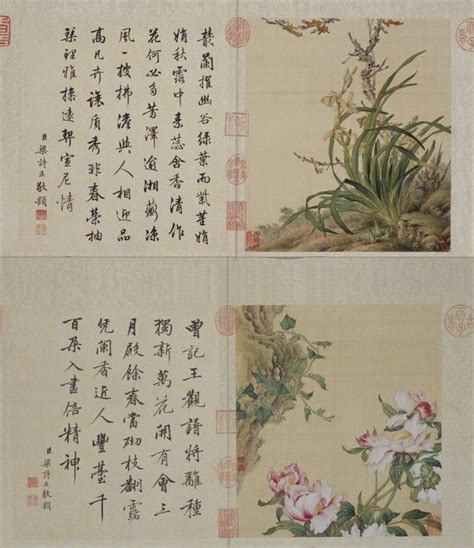 蘭擢幽谷綠葉而紫莖娟
娟秋露中素蕊含香清作
花何必多芳澤逾湘蘅涼
風一披拂澹與人相近品
高凡卉讓質秀非春榮抽
琴理雅操遠契宣尼情
臣梁詩正敬題
曾記王觀譜將離種
獨新萬花開有會三
月殿餘春當砌枝翻露
凭闌香近人豐臺千
百朵入畫倍精神
臣梁詩正敬題